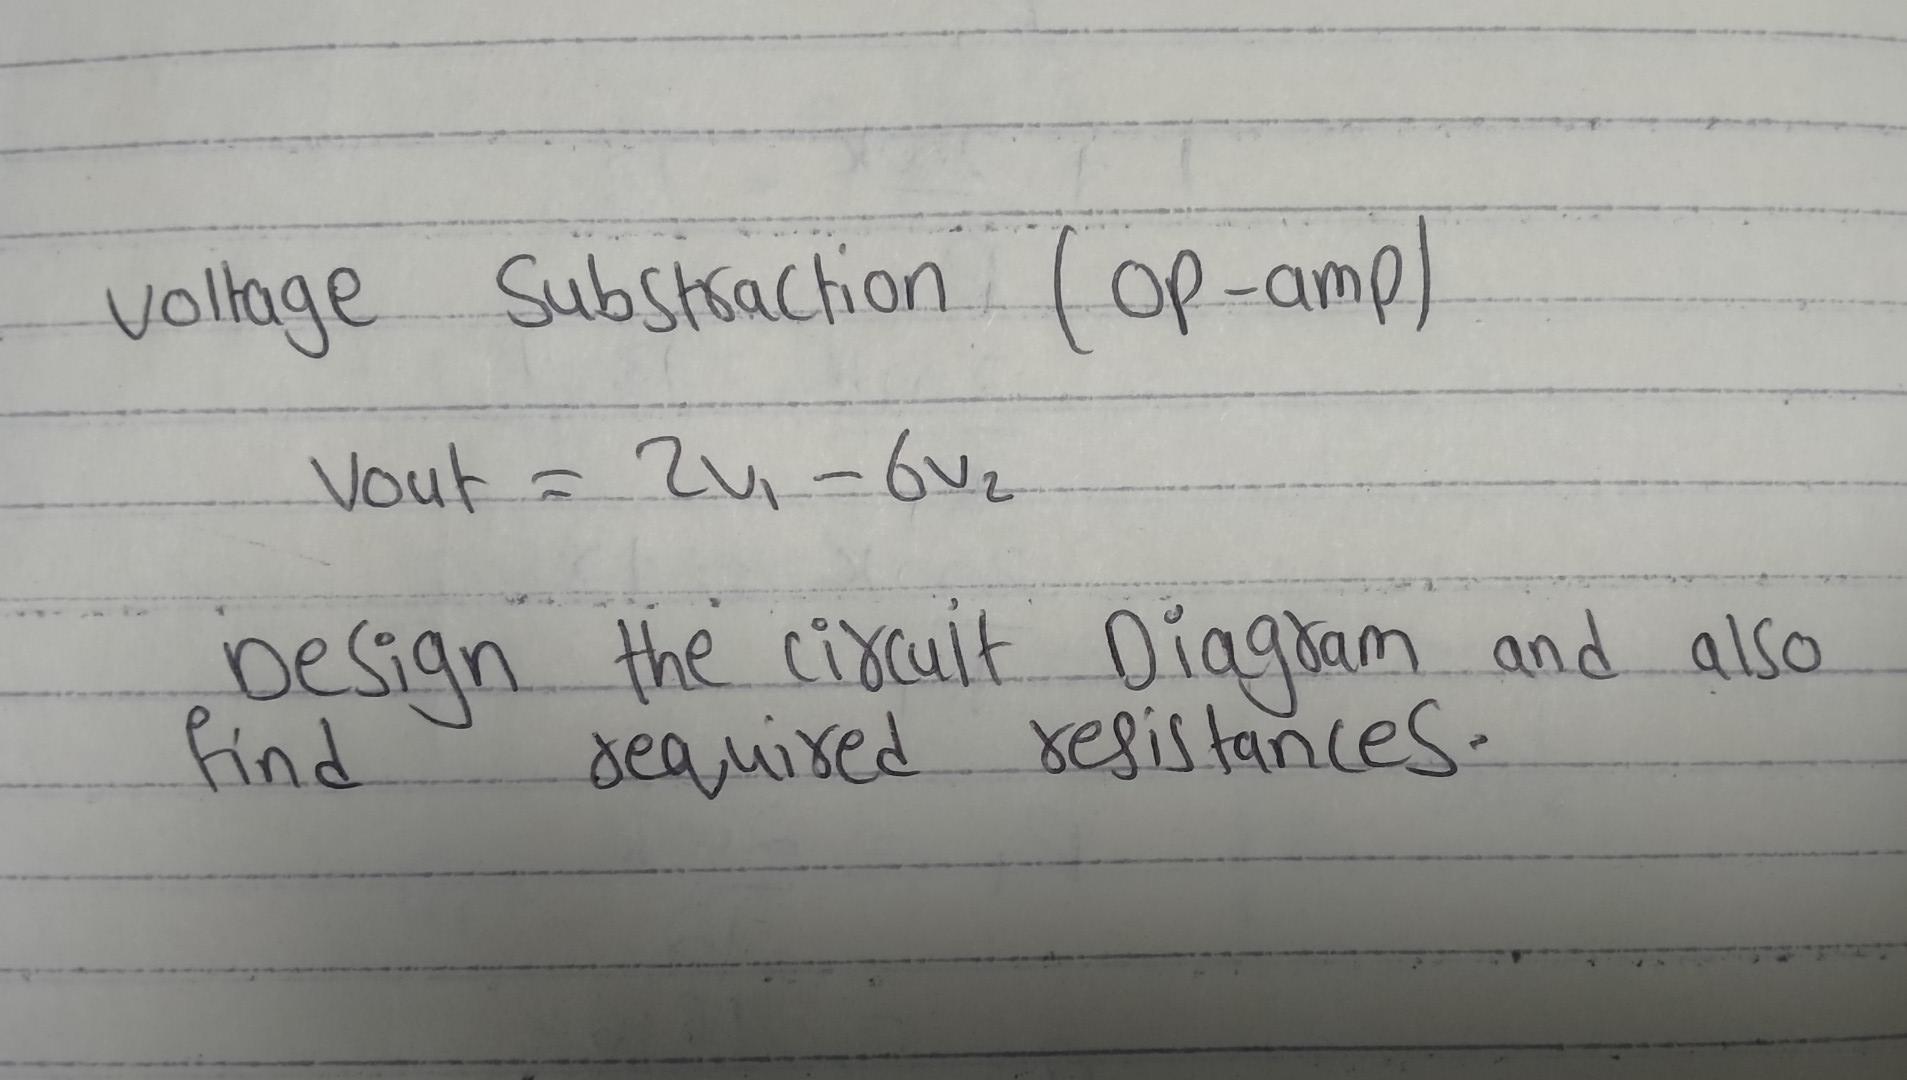 Voltage Substraction (op-amp)
Vout = 2v₁ - 6v₂
Design the circuit Diagram and also
find required resistances.